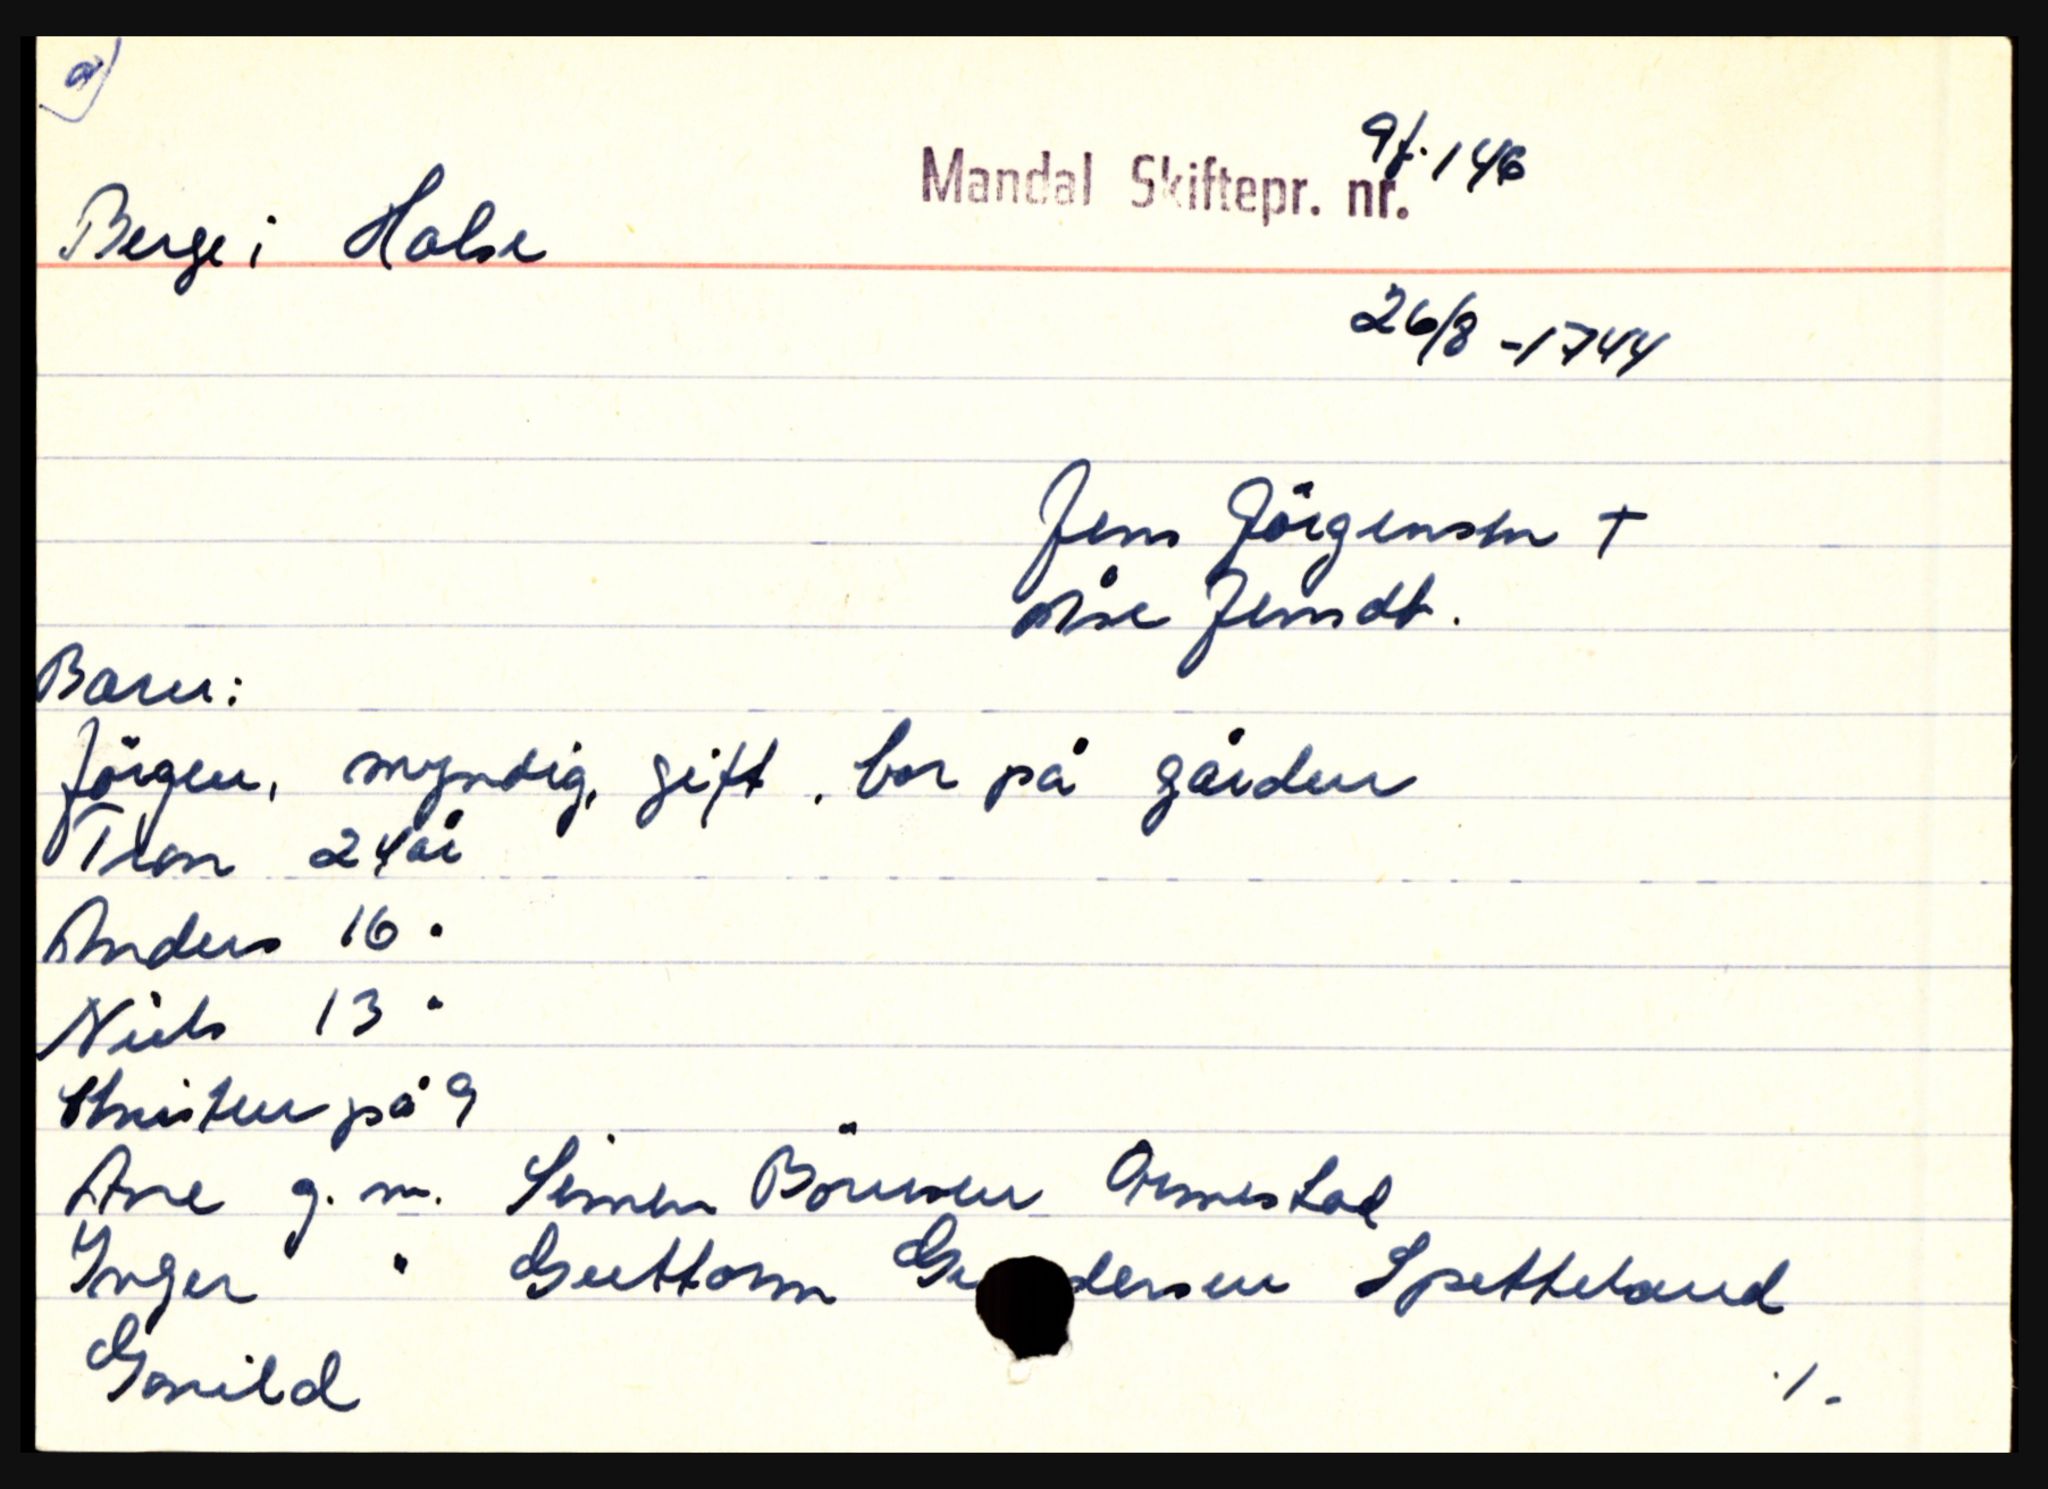 a)
Mandal Skiftepr. nr. 9f. 146
Berge i Halse
26/8 -1744
Jens Jörgensen †
Åse Jensdt.
Barn:
Jörgen, myndig, gift, bor på gården
Tron 24 år
Anders 16 "
Niels 13 "
Christen på 9
Ane g. m. Simen Börresen Ormestad
Inger " Guttorm Gu dersen Spetteland
Gonild
./.